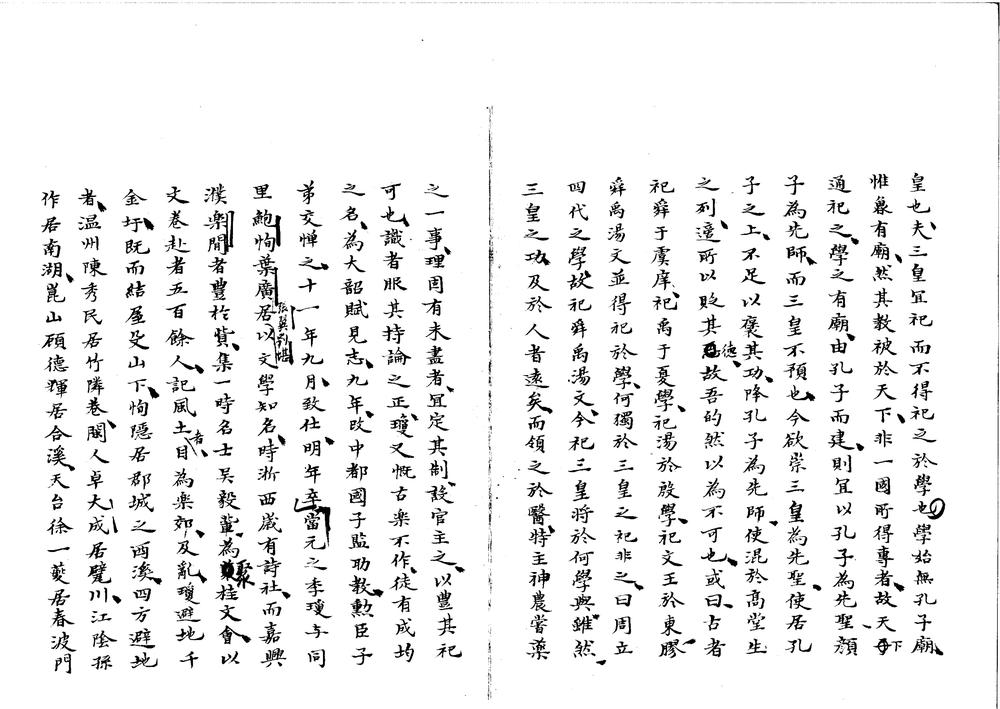 皇也夫三皇宜祀而不得祀之於學也學始無孔子廟
惟最有廟然其教被於天下非一國所得專者故天下
通祀之學之有廟由孔子而建則宜以孔子為先聖顏
子為先師而三皇不預也今欲崇三皇為先聖使居孔
子之上不足以褒其功降孔子為先師使混於高堂生
之列適所以貶其德故吾的然以為不可也或曰古者
祀舜于虞庠祀禹于夏學祀湯於殷學祀文王於東膠
舜禹湯文並得祀於學何獨於三皇之祀非之曰周立
四代之學故祀舜禹湯文今祀三皇將於何學與雖然
三皇之功及於人者遠矣而領之於醫特主神農嘗藥
之一事理固有未盡者宜定其制設官主之以豐其祀
可也識者服其持論之正瓊又慨古樂不作徒有成均
之名為大韶賦見志九年改中都國子監助教勲臣子
弟交憚之十一年九月致仕明年卒當元之季瓊与同
里鮑恂葉廣居張翼劉堪以文學知名時浙西歲有詩社而嘉興
濮樂閒者豐於貲集一時名士吳毅輩為聚桂文會以
文卷赴者五百餘人記風土者目為樂郊及亂瓊避地千
金圩既而結屋殳山下恂隱居郡城之西溪四方避地
者温州陳秀民居竹隣巷閩人卓大成居甓川江陰孫
作居南湖崑山顧德輝居合溪天台徐一夔居春波門